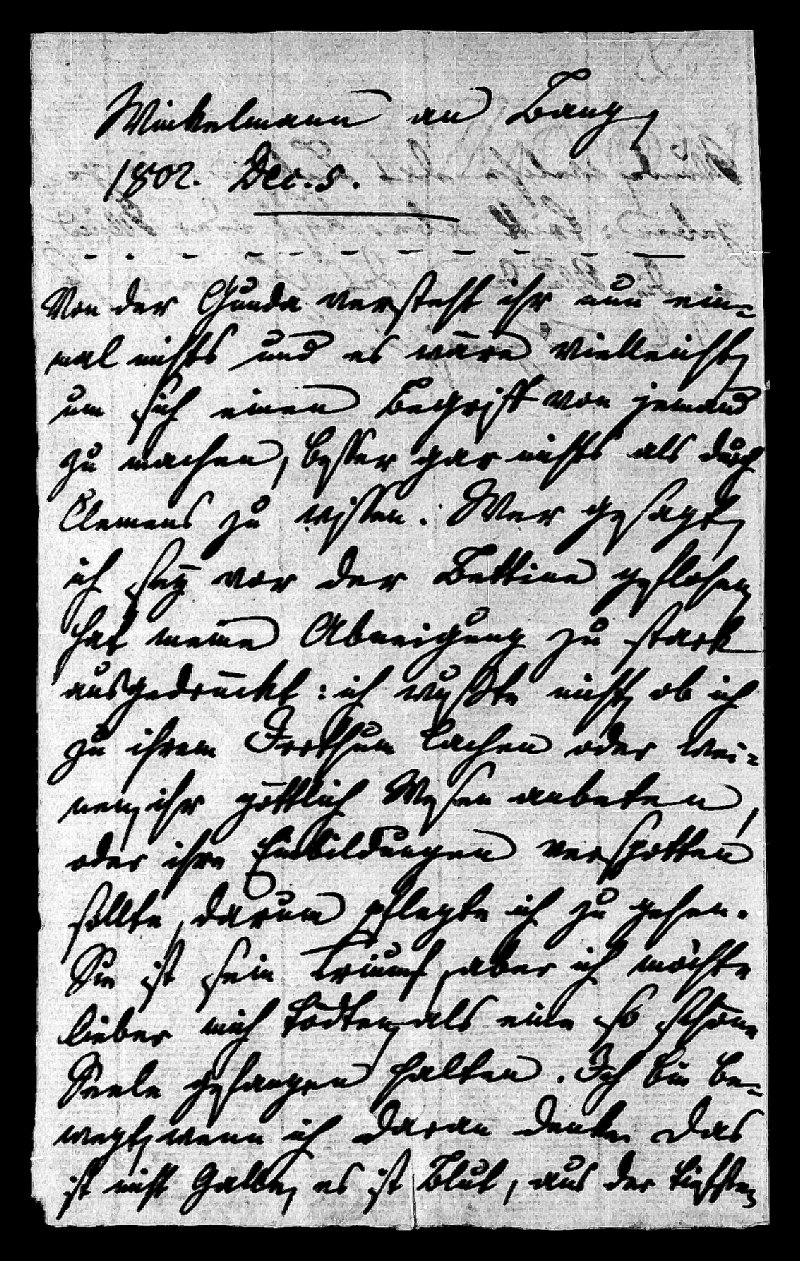 Winkelmann an Bang
1802. Dec. 5.
Von der Gunda versteht ihr nun ein-
mal nichts und es wäre vielleicht,
um sich einen Begriff von jemand
zu machen, besser gar nichts als durch
Clemens zu wissen. Wer gesagt,
ich sey vor der Bettine geflohen,
hat meine Abneigung zu stark
ausgedrückt: ich wußte nicht, ob ich
zu ihrem Irrthum lachen oder wei-
nen, ihr göttlich Wesen anbeten,
oder ihre Einbildungen verspotten
sollte, darum pflegte ich zu gehen.
Sie ist sein Triumf, aber ich möchte
lieber mich tödten, als eine so schöne
Seele gefangen halten. Ich bin be-
wegt, wenn ich daran denke, das
ist nicht Galle, es ist Blut, aus der tiefsten